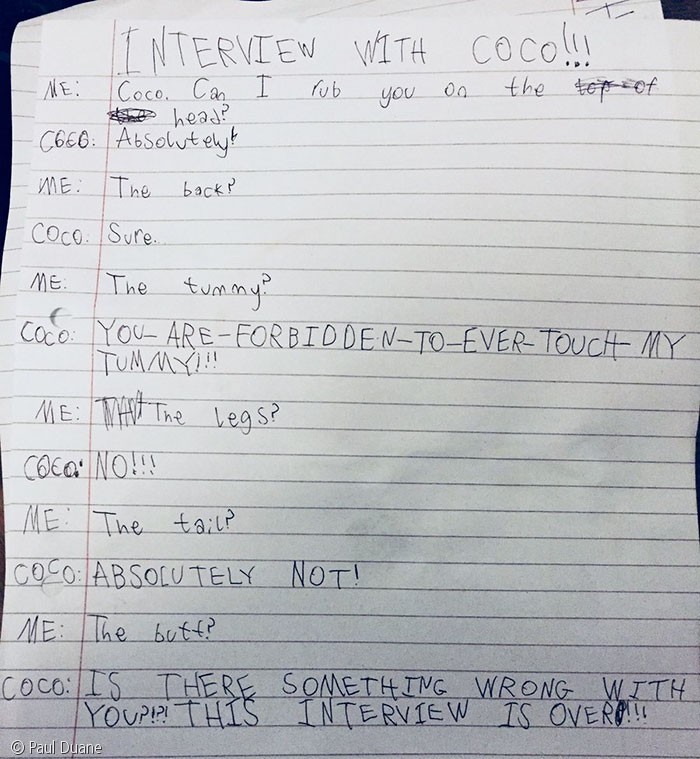 INTERVIEW WITH COCO!!!
ME: Coco. Can I rub you on the top of
the head?
COCO: Absolutely!
ME: The back?
COCO: Sure.
ME: The tummy?
COCO: YOU-ARE-FORBIDDEN-TO-EVER-TOUCH-MY
TUMMY!!!
ME: The legs?
COCO: NO!!!
ME: The tail?
COCO: ABSOLUTELY NOT!
ME: The butt?
COCO: IS THERE SOMETHING WRONG WITH
YOU?!?! THIS INTERVIEW IS OVER!!!
© Paul Duane